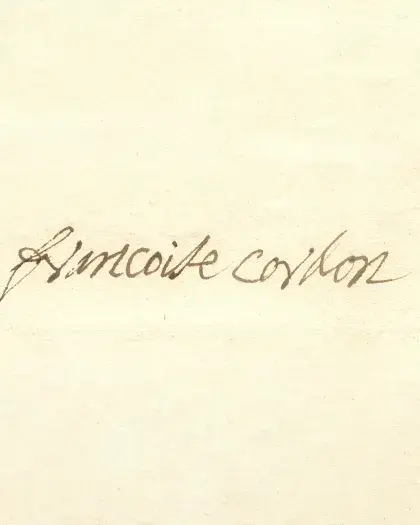 francoise cordon